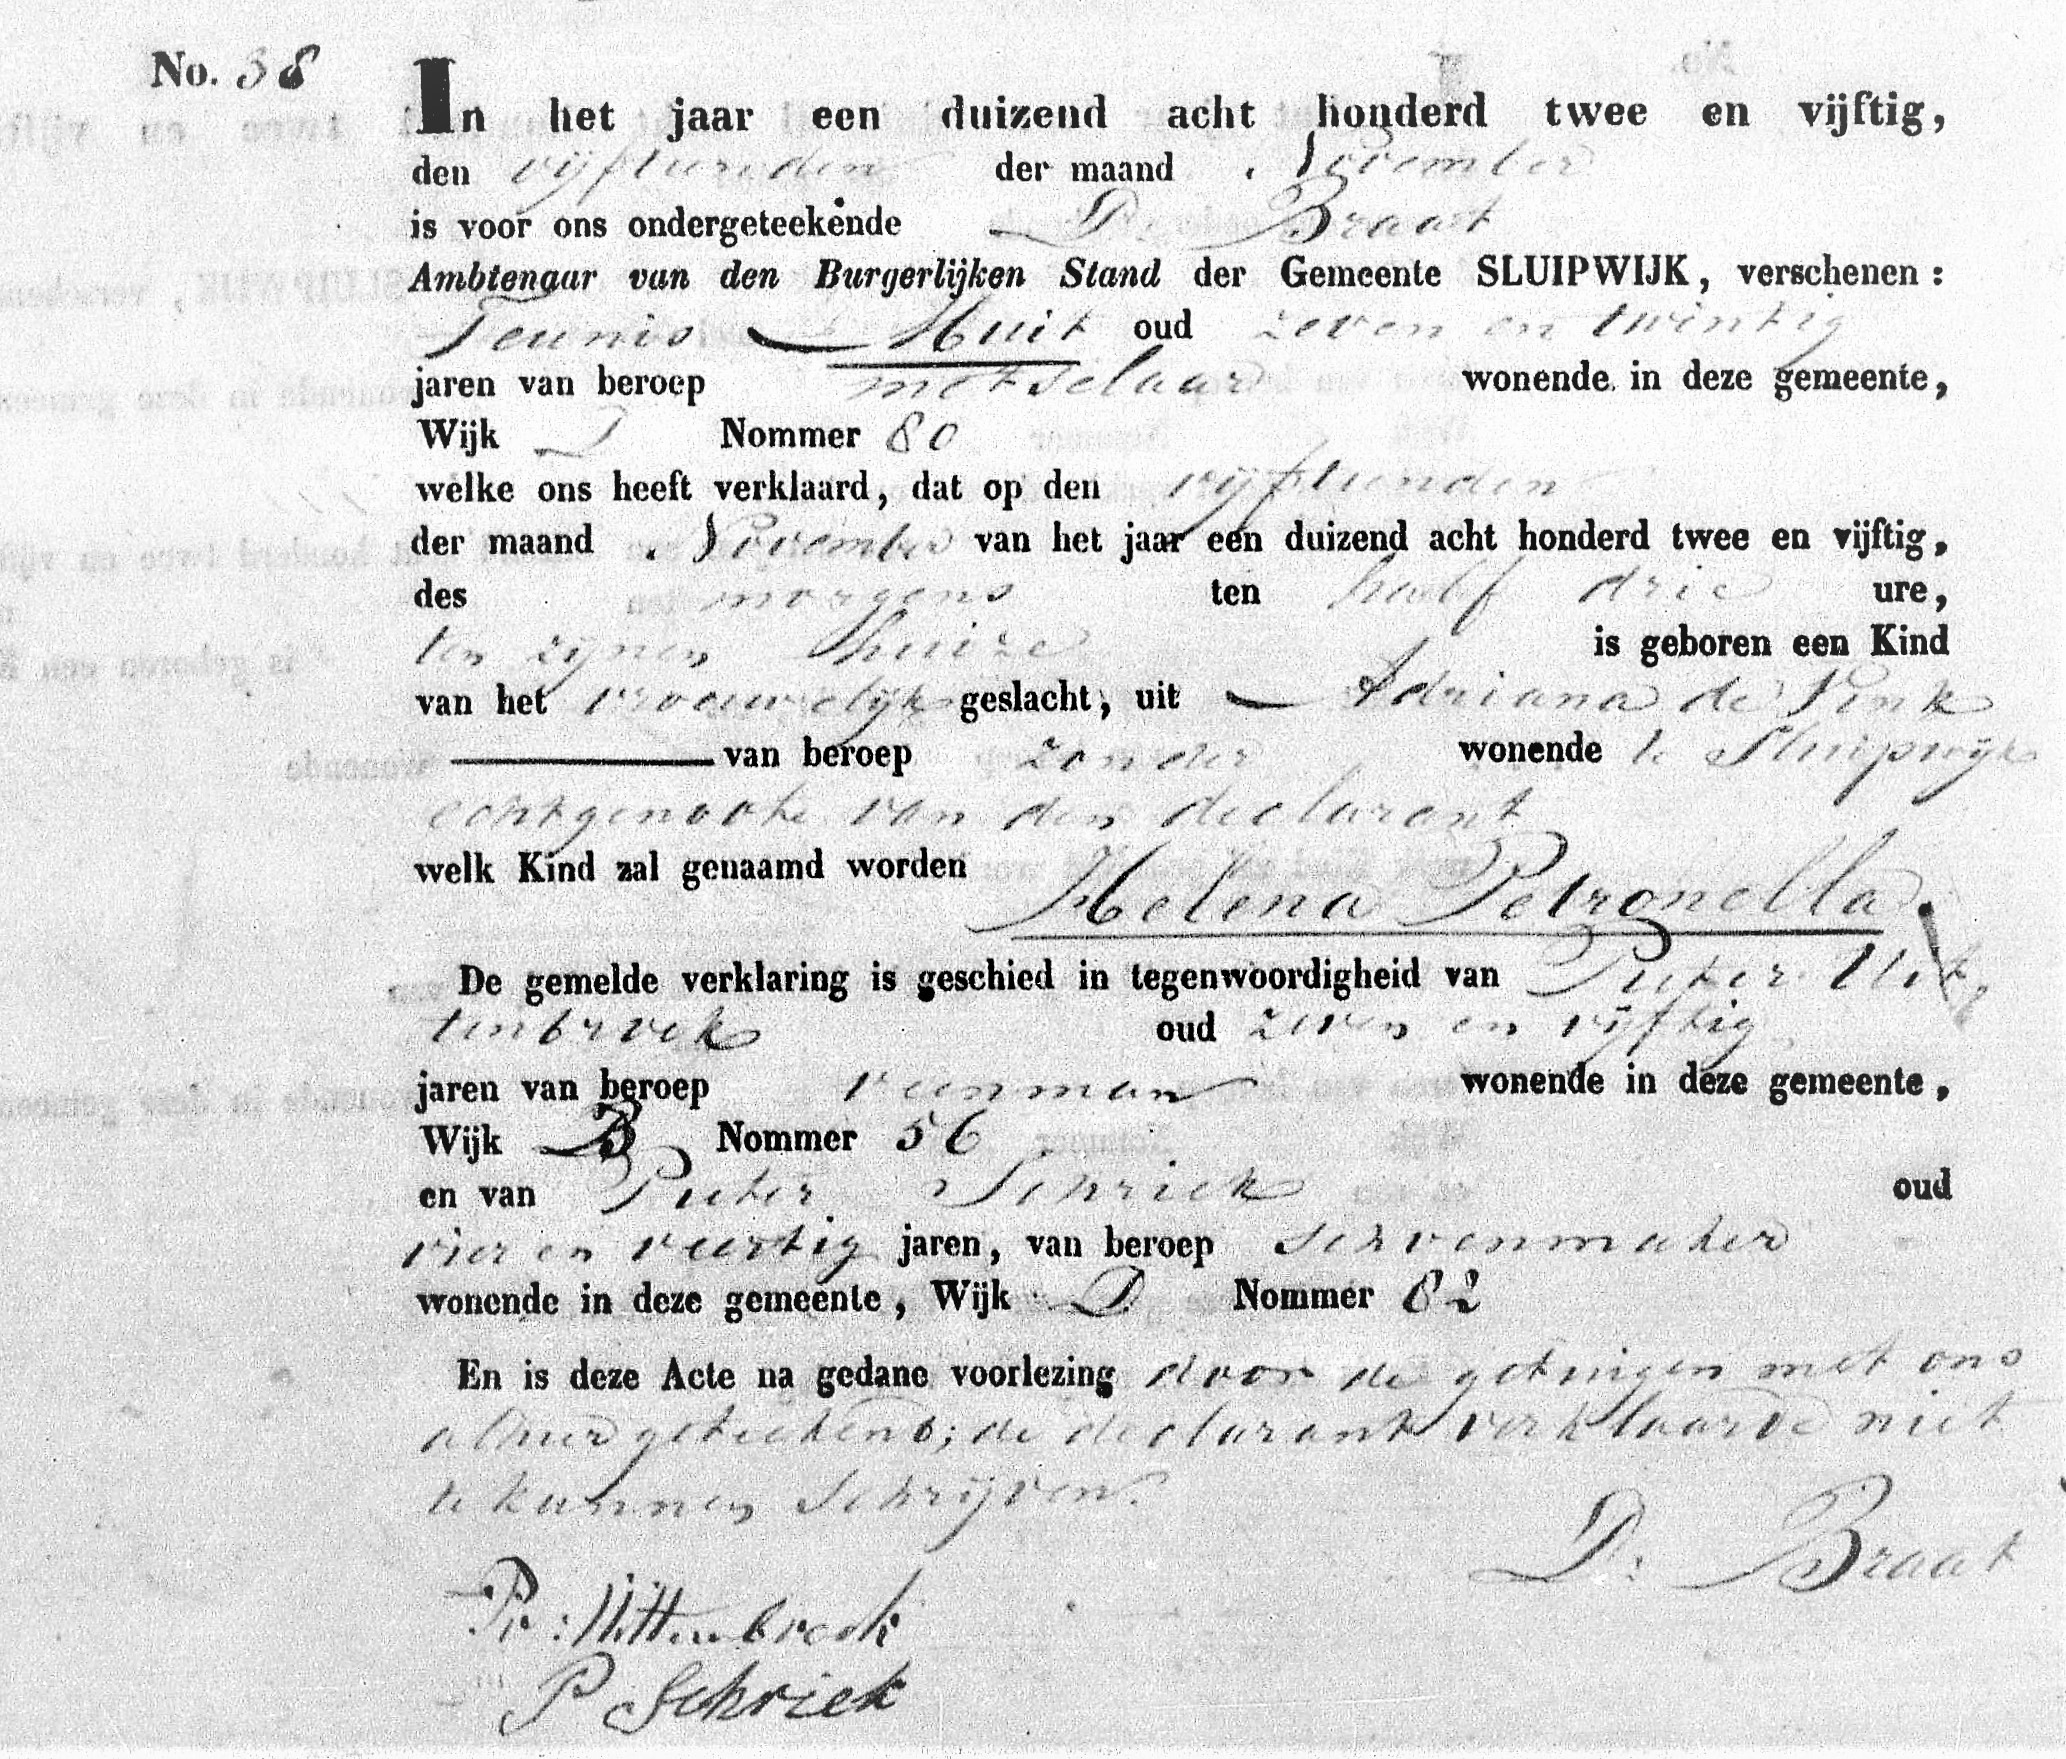 No. 38
In het jaar een duizend acht honderd twee en vijftig,
den vijftienden der maand November
is voor ons ondergeteekende D. Braat
Ambtenaar van den Burgerlijken Stand der Gemeente SLUIPWIJK, verschenen:
Teunis Huit oud zeven en twintig
jaren van beroep metselaar wonende in deze gemeente,
Wijk D Nommer 80
welke ons heeft verklaard, dat op den vijftienden
der maand November van het jaar een duizend acht honderd twee en vijftig,
des morgens ten half drie ure,
ten zijnen huize is geboren een Kind
van het vrouwelijk geslacht, uit Adriana de Pink
van beroep zonder wonende te Sluipwijk
echtgenoote van den declarant
welk Kind zal genaamd worden Helena Petronella.
De gemelde verklaring is geschied in tegenwoordigheid van Pieter Uit
tenbroek oud zeven en vijftig
jaren van beroep veenman wonende in deze gemeente,
Wijk B Nommer 56
en van Pieter Schriek oud
vier en veertig jaren, van beroep schoenmaker
wonende in deze gemeente, Wijk D Nommer 82
En is deze Acte na gedane voorlezing door de getuigen met ons
alhier geteekend; de declarant verklaarde niet
te kunnen schrijven.
D. Braat
Pr: Uittenbroek
P Schriek